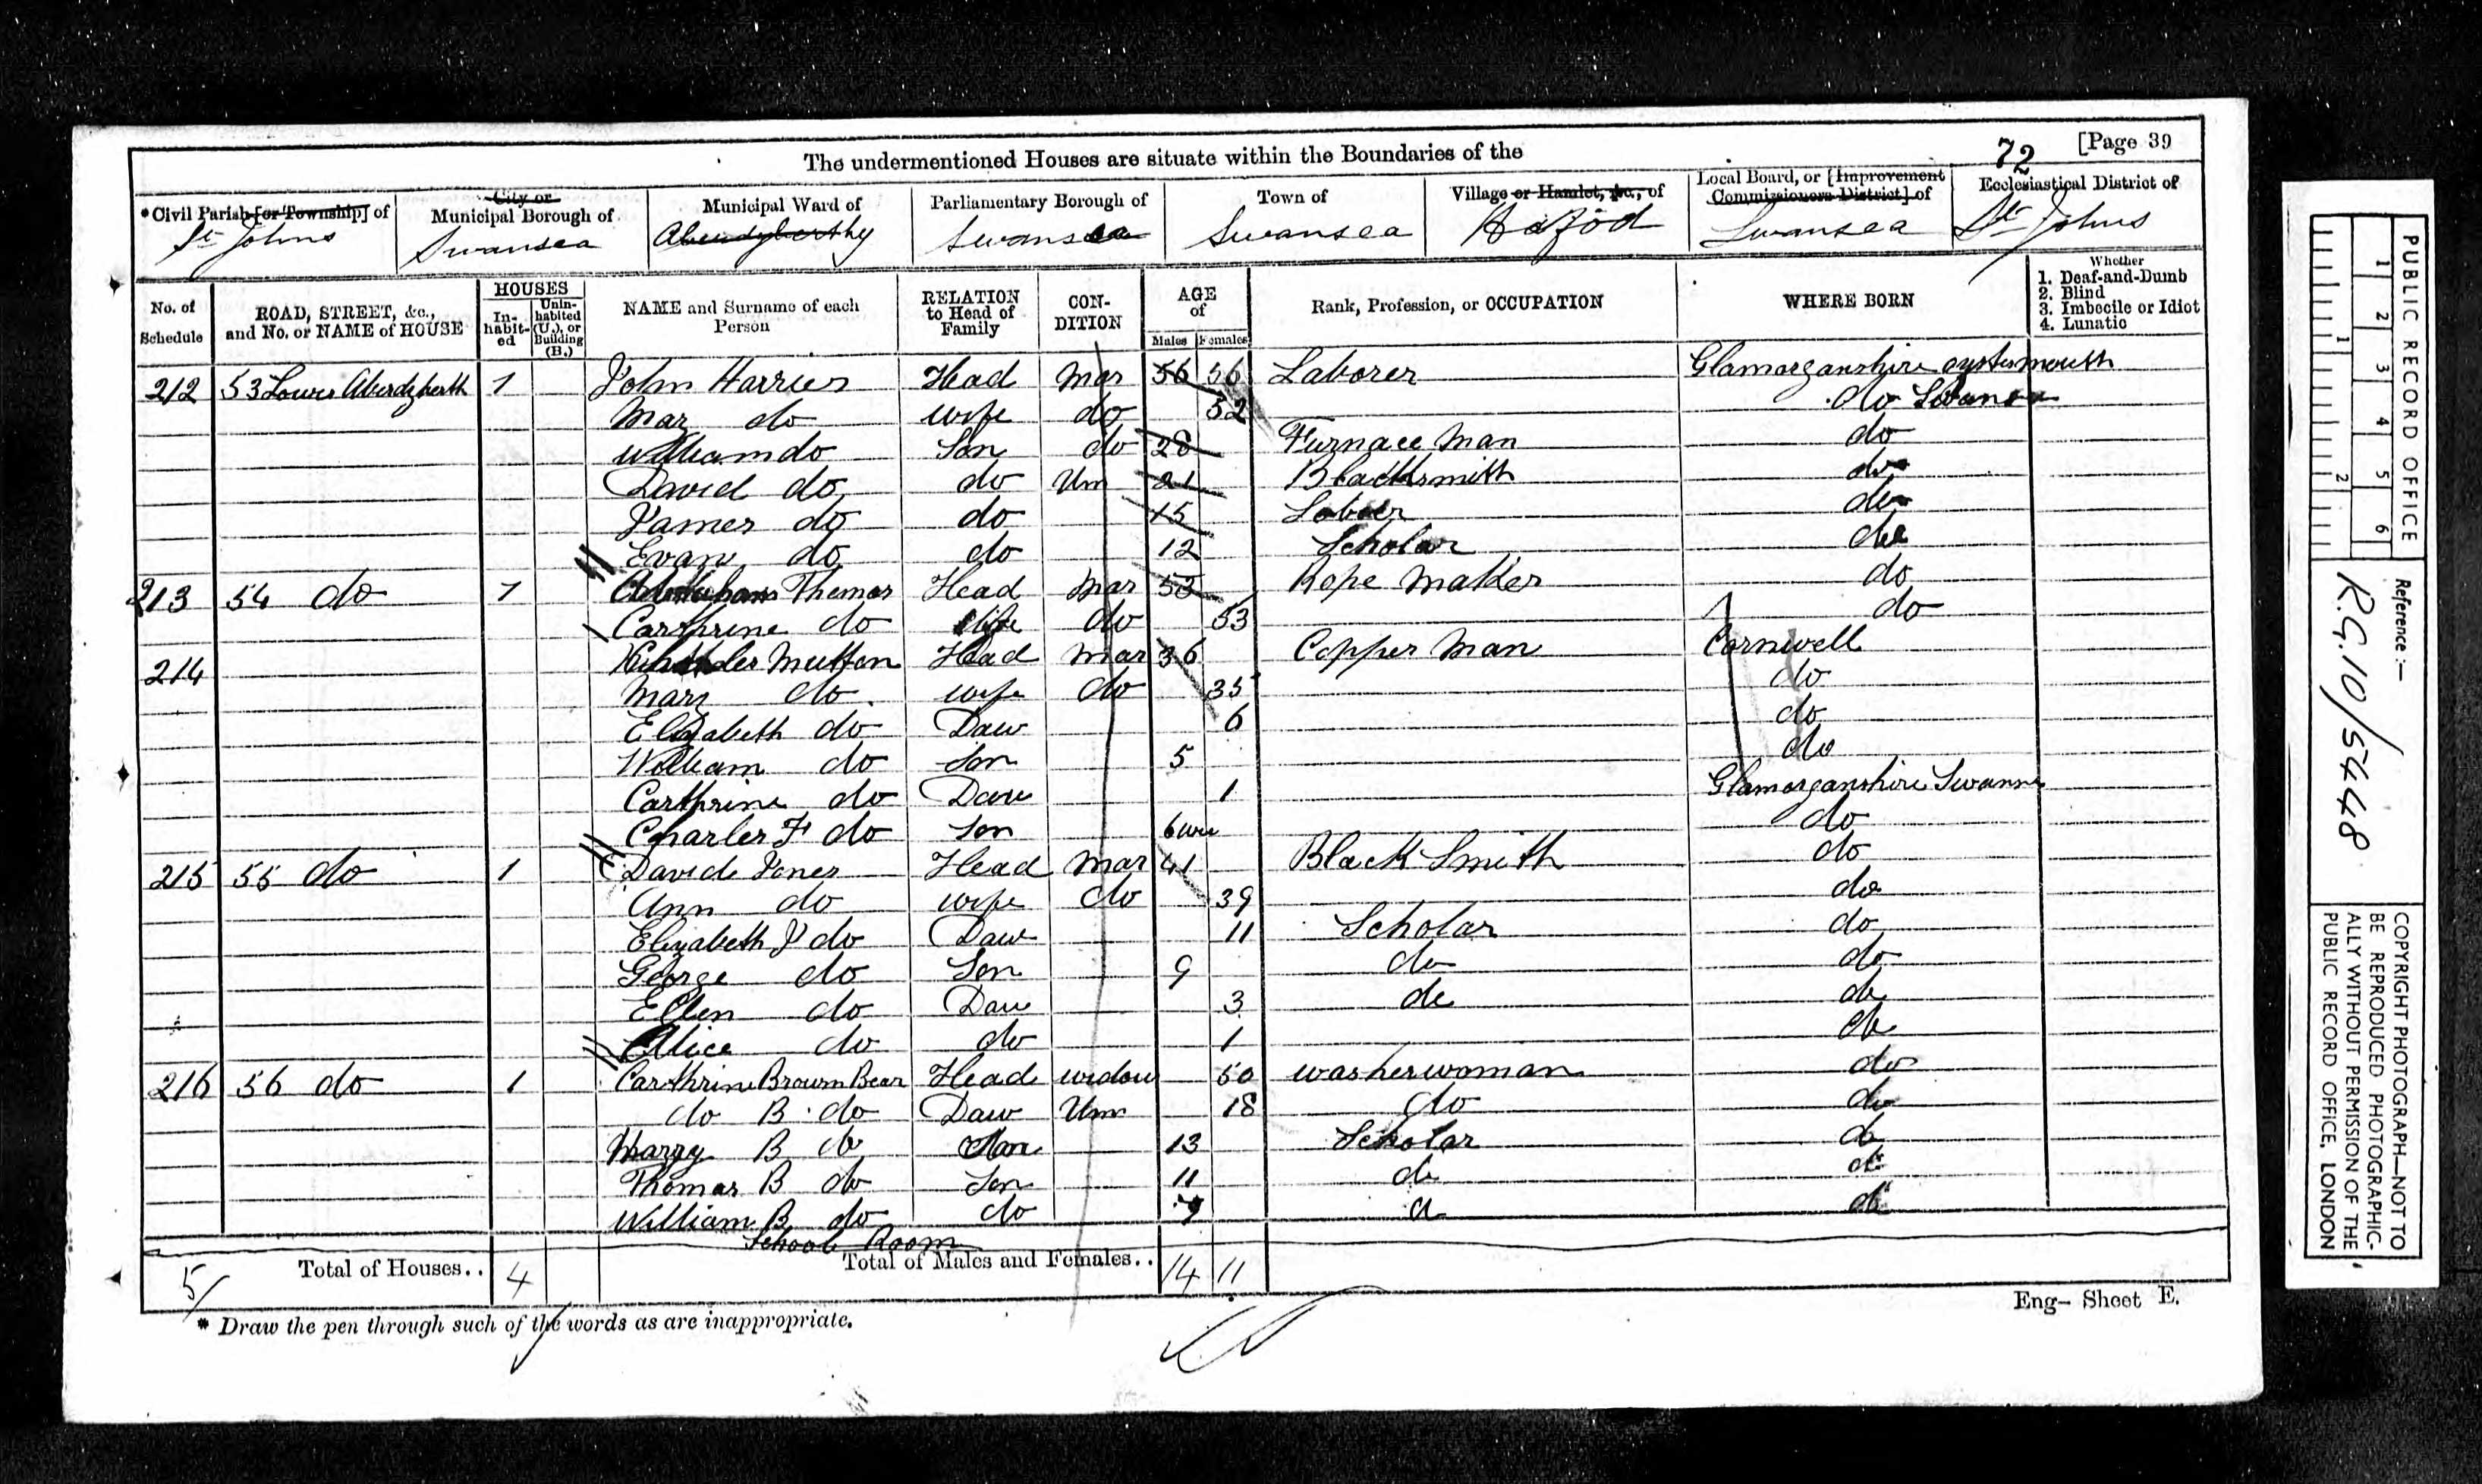 72 [Page 39
The undermentioned Houses are situate within the Boundaries of the
*Civil Parish [or Township] of
City or Municipal Borough of
Municipal Ward of
Parliamentary Borough of
Town of
Village or Hamlet, &c., of
Local Board, or [Improvement Commissioners District] of
Ecclesiastical District of
St Johns Swansea Aberdyberthy Swansea Swansea Hafod Swansea St Johns
No. of Schedule
ROAD, STREET, &c., and No. or NAME of HOUSE
HOUSES
In-habit-ed
Unin-habited (U.), or Building (B.)
NAME and Surname of each Person
RELATION to Head of Family
CON-DITION
AGE of
Males Females
Rank, Profession, or OCCUPATION
WHERE BORN
Whether
1. Deaf-and-Dumb
2. Blind
3. Imbecile or Idiot
4. Lunatic
212 53 Lower Aberdyberth 1 John Harries Head Mar 56 56 Laborer Glamorganshire oystermouth
Mary do wife do 52 do Swansea
William do Son do 28 Furnace Man do
David do do Um 21 Blacksmith do
James do do 15 do
Evan do do 12 Scholar do
213 54 do 1 Thomas Head Mar 53 Rope Maker do
Carthrine do wife do 53 do
214 Mutten Head Mar 36 Copper Man Cornwell
Mary do wife do 35 do
Elizabeth do Daw 6 do
William do Son 5 do
Carthrine do Daw 1 Glamorganshire Swansea
Charles F do Son do
215 55 do 1 David Jones Head Mar 41 Black Smith do
Ann do wife do 39 do
Elizabeth J do Daw 11 Scholar do
George do Son 9 do do
Ellen do Daw 3 do do
Alice do do 1 do
216 56 do 1 Carthrine Brown Bear Head widow 50 washerwoman do
do B do Daw Um 18 do do
Harry B do 13 Scholar do
Thomas B do Son 11 do do
William B do do do
School Room
5/ Total of Houses.. 4 Total of Males and Females.. 14 11
* Draw the pen through such of the words as are inappropriate.
Eng- Sheet E.
PUBLIC RECORD OFFICE
1 2 3 4 5 6
1 2
Reference:-
R.G. 10/5448
COPYRIGHT PHOTOGRAPH—NOT TO
BE REPRODUCED PHOTOGRAPHIC-
ALLY WITHOUT PERMISSION OF THE
PUBLIC RECORD OFFICE, LONDON